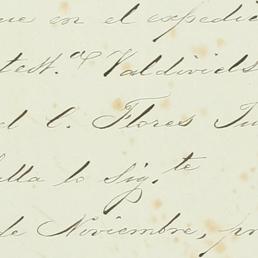 ue en el expedie
test.ª Valdivids
el C. Flores Ju
alla lo sig.te
de Noviembre, pr